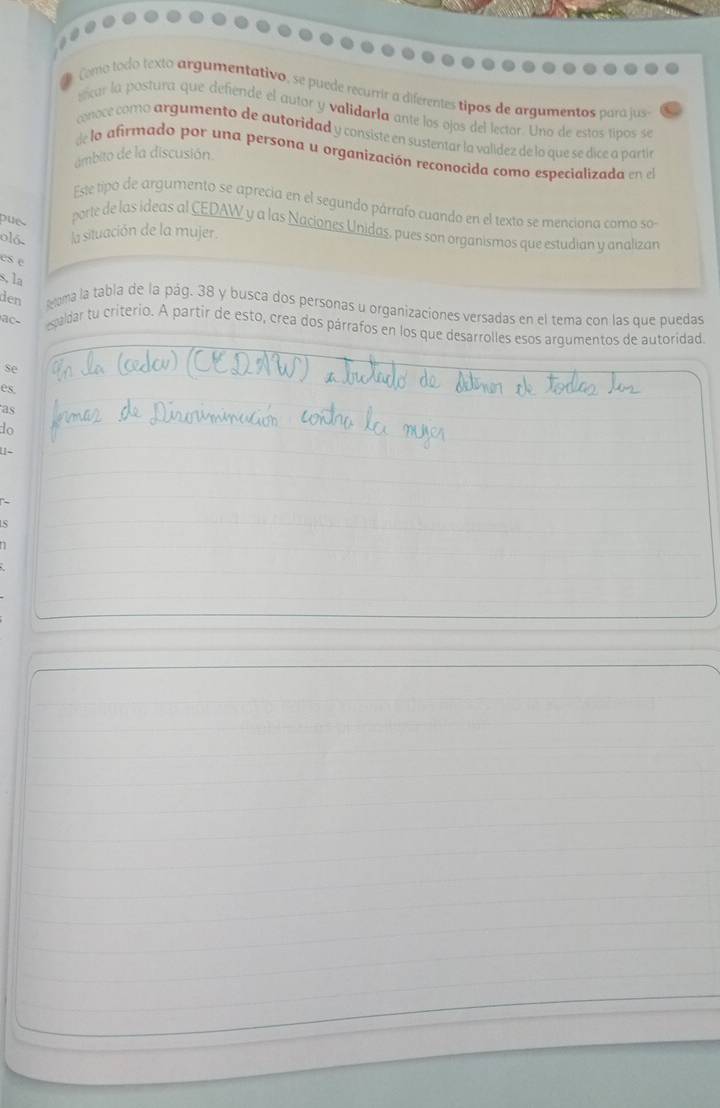 Como todo texto argumentativo, se puede recurrir a diferentes tipos de argumentos para jus-
tificar la postura que defiende el autor y validarla ante los ojos del lector. Uno de estos tipos se
conoce como argumento de autoridad y consiste en sustentar la validez de lo que se dice a partir
de lo afirmado por una persona u organización reconocida como especializada en el
ámbito de la discusión.
Este tipo de argumento se aprecia en el segundo párrafo cuando en el texto se menciona como so-
porte de las ideas al CEDAW y a las Naciones Unidas, pues son organismos que estudian y analizan
la situación de la mujer.
Retoma la tabla de la pág. 38 y busca dos personas u organizaciones versadas en el tema con las que puedas
respaldar tu criterio. A partir de esto, crea dos párrafos en los que desarrolles esos argumentos de autoridad.
en la (cedaw) (CEDAW) a tratado de detener de todas las
formas de Discriminación contra la mujer
pue-
oló-
es e
s, la
den
ac-
se
es.
as
do
u-
r-
s
n
s.
-